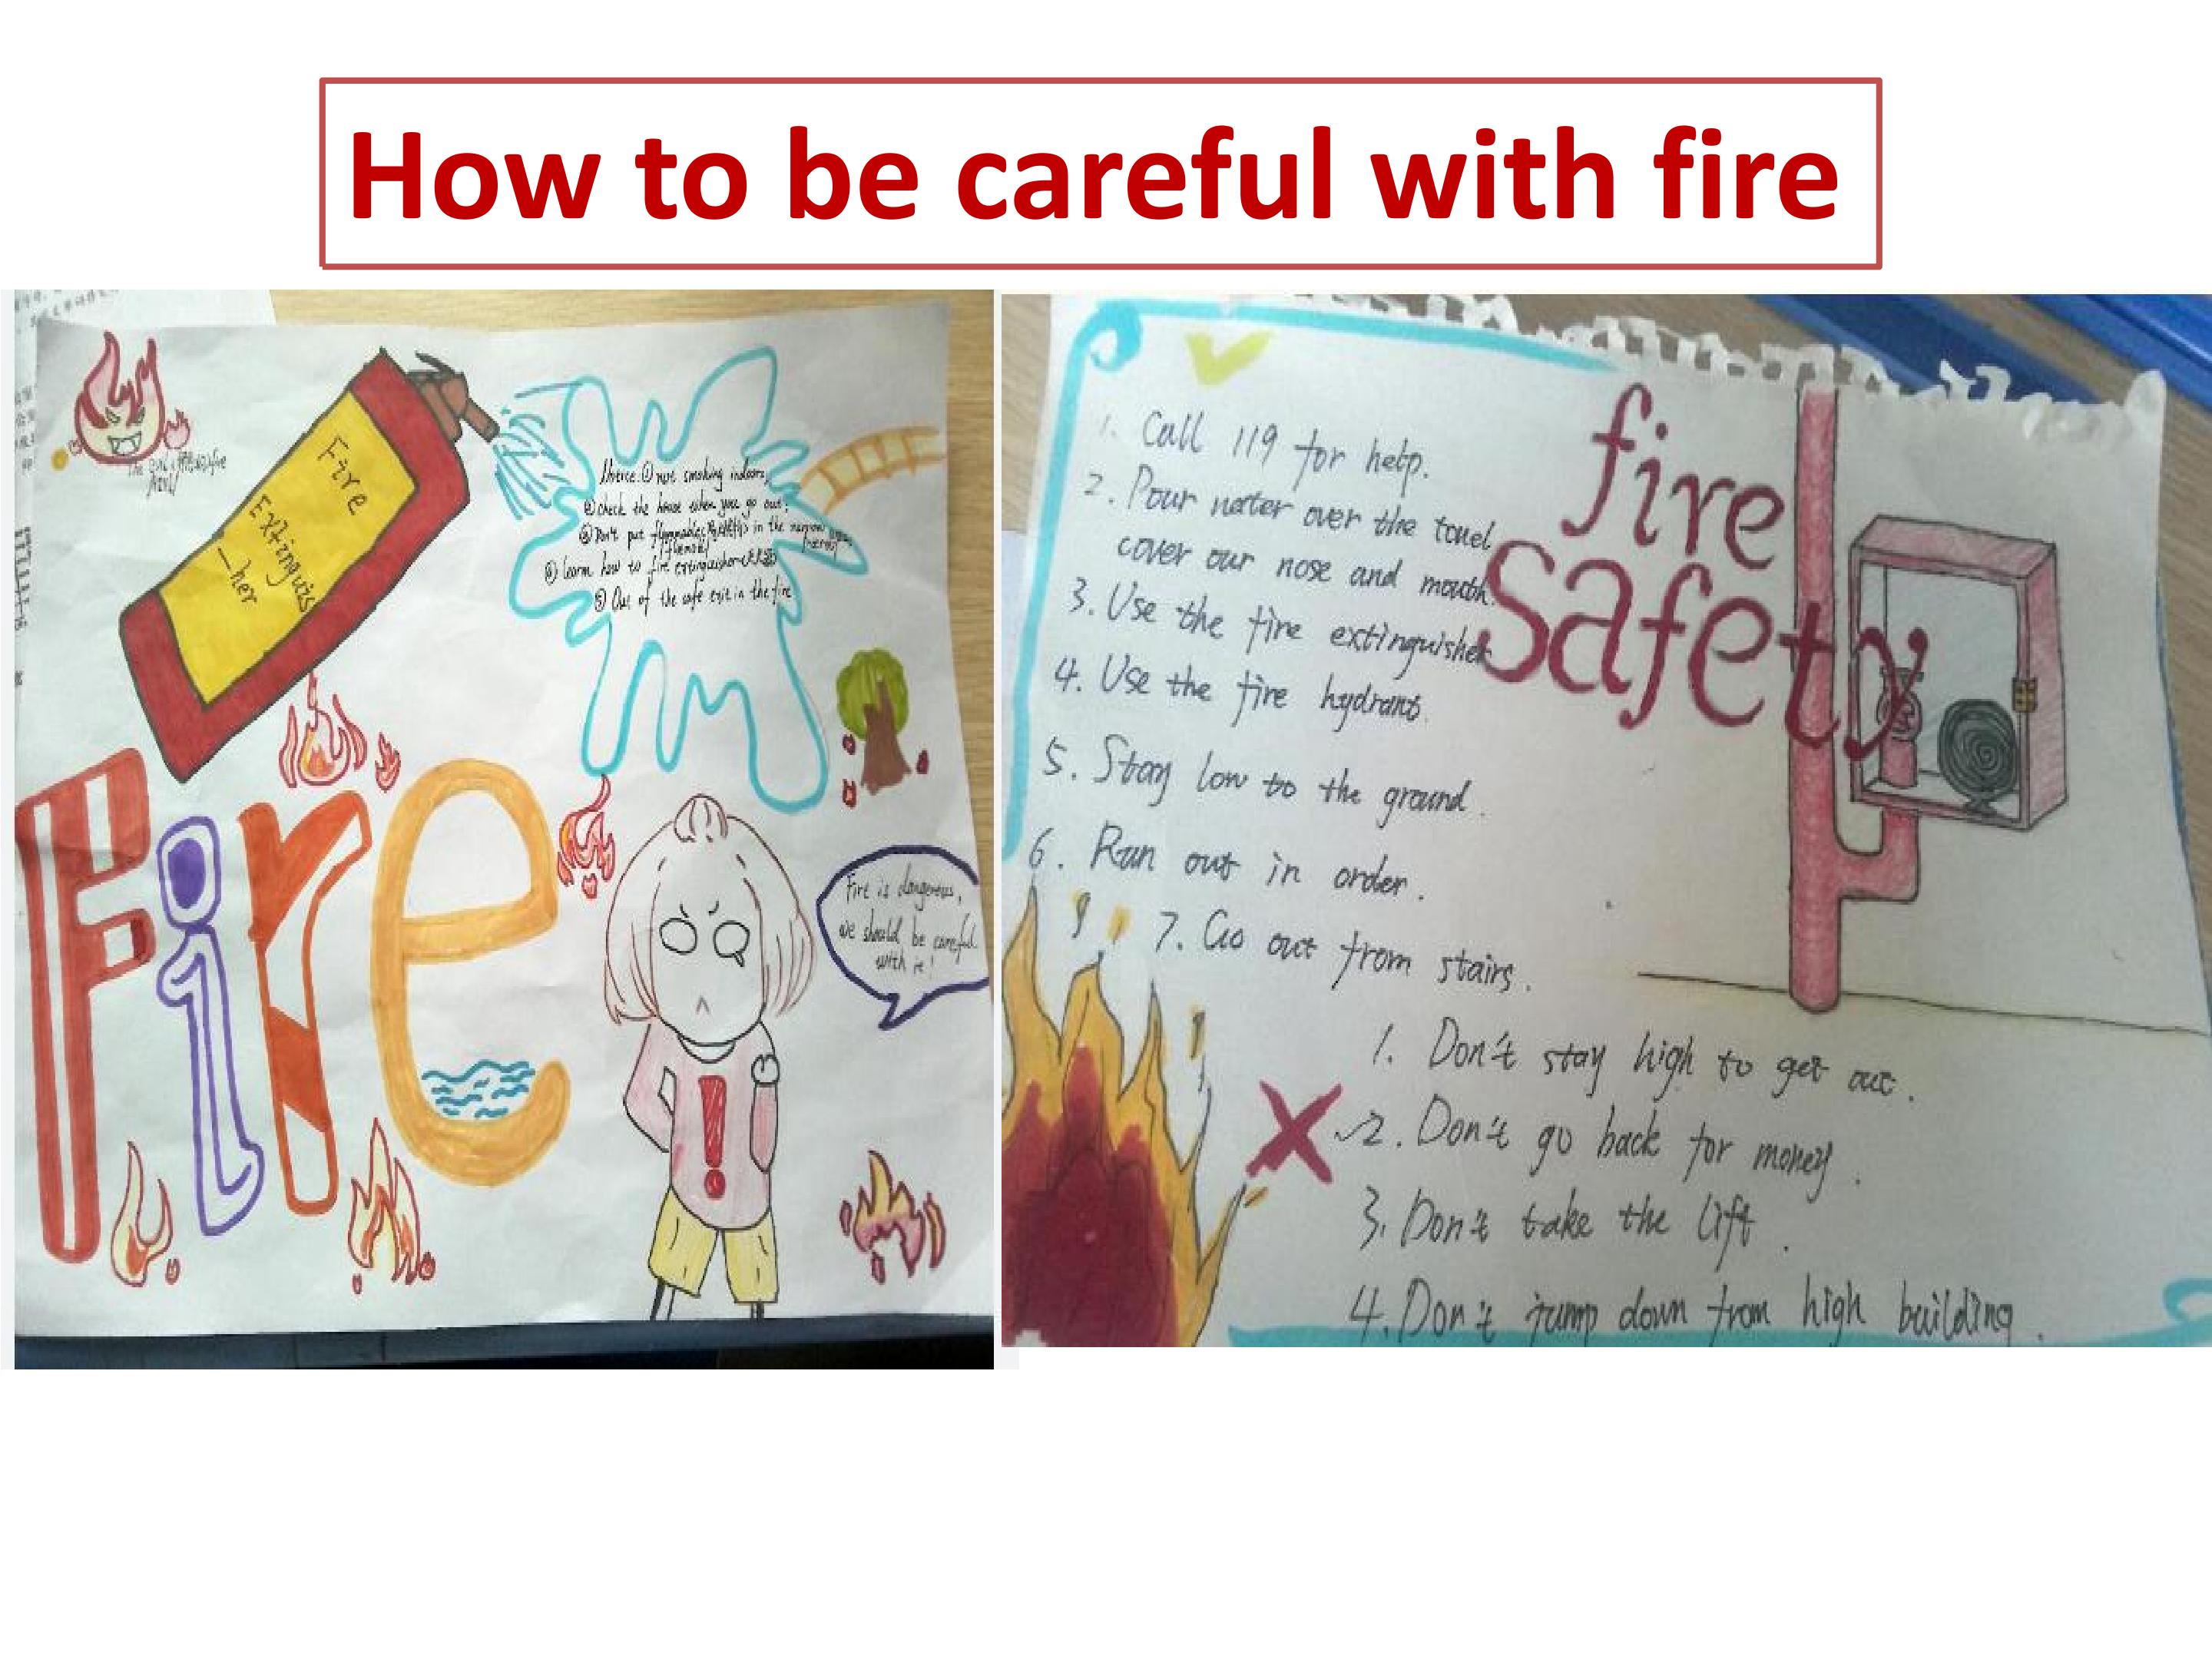 How to be careful with fire
Fire
Extinguis
-her
Notice: ① not smoking indoors,
② check the house when you go out;
③ Don't put flammables in the narrow
④ learn how to fire extinguisher
⑤ Out of the safe exit in the fire
Fire
Fire is dangerous,
we should be careful
with it!
fire
safety
1. Call 119 for help.
2. Pour water over the towel
cover our nose and mouth.
3. Use the fire extinguisher
4. Use the fire hydrant.
5. Stay low to the ground.
6. Run out in order.
7. Go out from stairs.
1. Don't stay high to get out.
2. Don't go back for money.
3. Don't take the lift.
4. Don't jump down from high building.